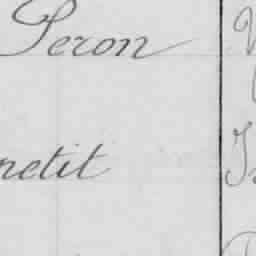 Peron
netit